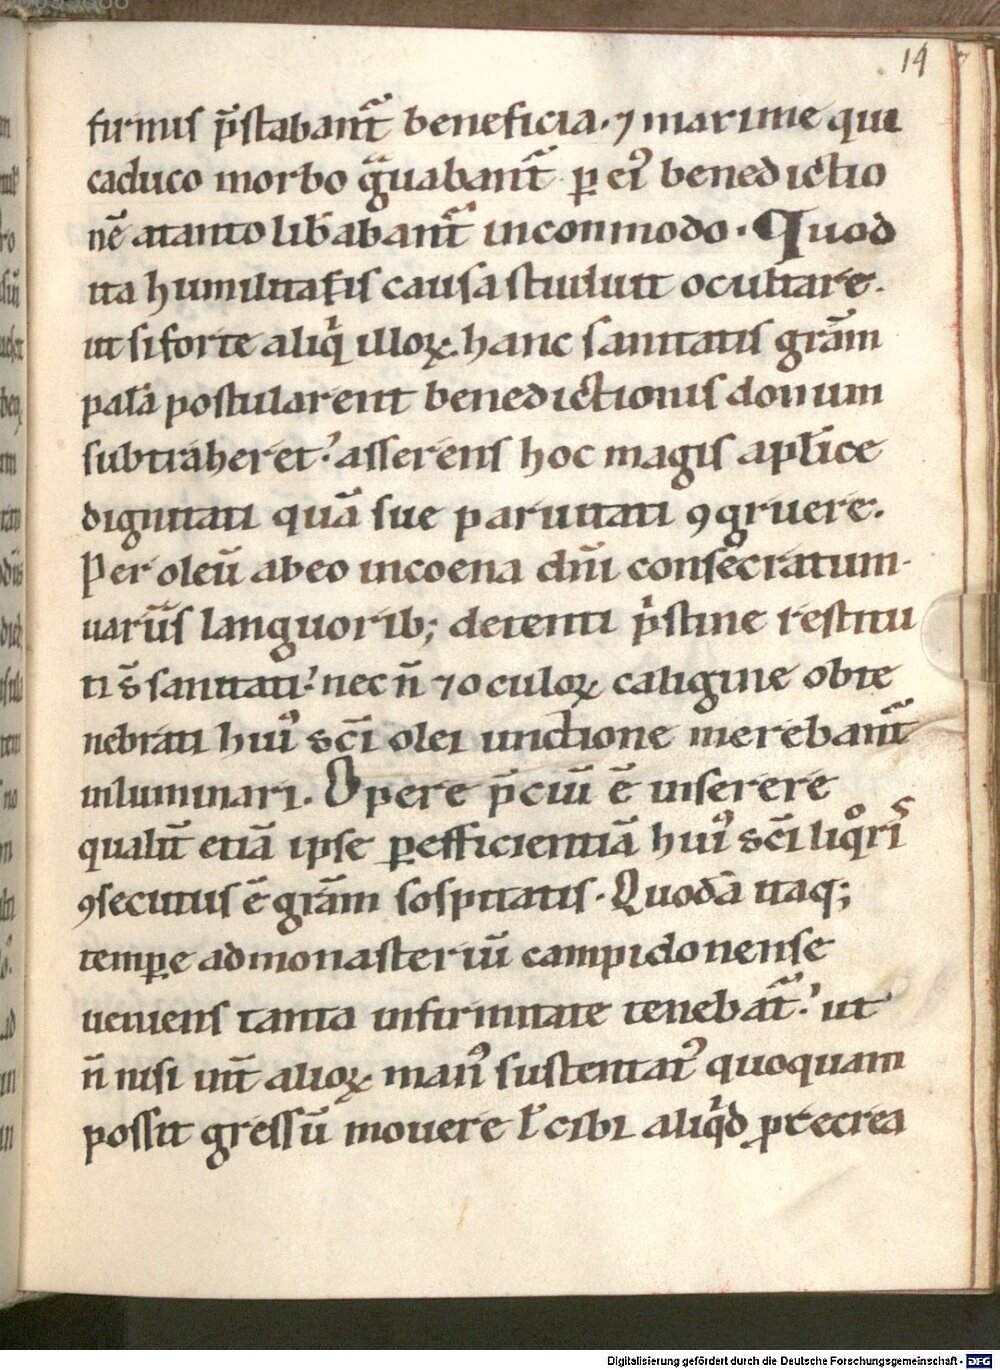 14
firmis p̄stabant᷑ beneficia. ⁊ maxime qui
caduco morbo gͣuabant᷑ ꝑ ei᷒ benedictio
nē atanto lib̄abant᷑ incommodo. Quod
ita humilitatis causa studuit ocultare.
ut si forte aliqͥ illoꝝ hanc sanitatis grām
palā postularent benedictionis donum
subtraheret. asserens hoc magis aplice
dignitati quā sue paruitati ꝯgruere.
Per oleū abeo incoena dn̄i consecratum.
uariis languorib; detenti pͥstine restitu
ti s̄ sanitati. nec n̄ ⁊ oculoꝝ caligine obte
nebrati hui᷒ sc̄i olei unctione merebant᷑
inluminari. Opere p̄ciū ē inserere
qualit̄ etiā ipse ꝑ efficientiā hui᷒ sc̄i liqͦris
ꝯsecutus ē grām sospitatis. Quodā itaq;
temꝑe ad monasteriū campidonense
ueniens tanta infirmitate tenebat᷑. ut
n̄ nisi int̄ alioꝝ man᷒ sustentat᷒ quoquam
possit gressū mouere ł cibi aliqͥd ꝓ recrea
Digitalisierung gefördert durch die Deutsche Forschungsgemeinschaft - DFG